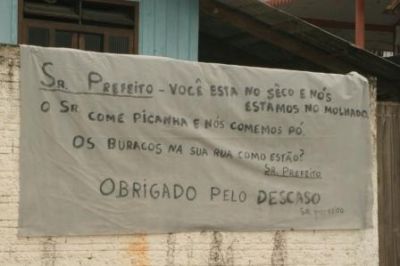 SR. PREFEITO - VOCÊ ESTA NO SÊCO E NÓS
ESTAMOS NO MOLHADO
O SR. COME PICANHA E NÓS COMEMOS PÓ.
OS BURACOS NA SUA RUA COMO ESTÃO?
SR. PREFEITO
OBRIGADO PELO DESCASO
SR. PREFEITO